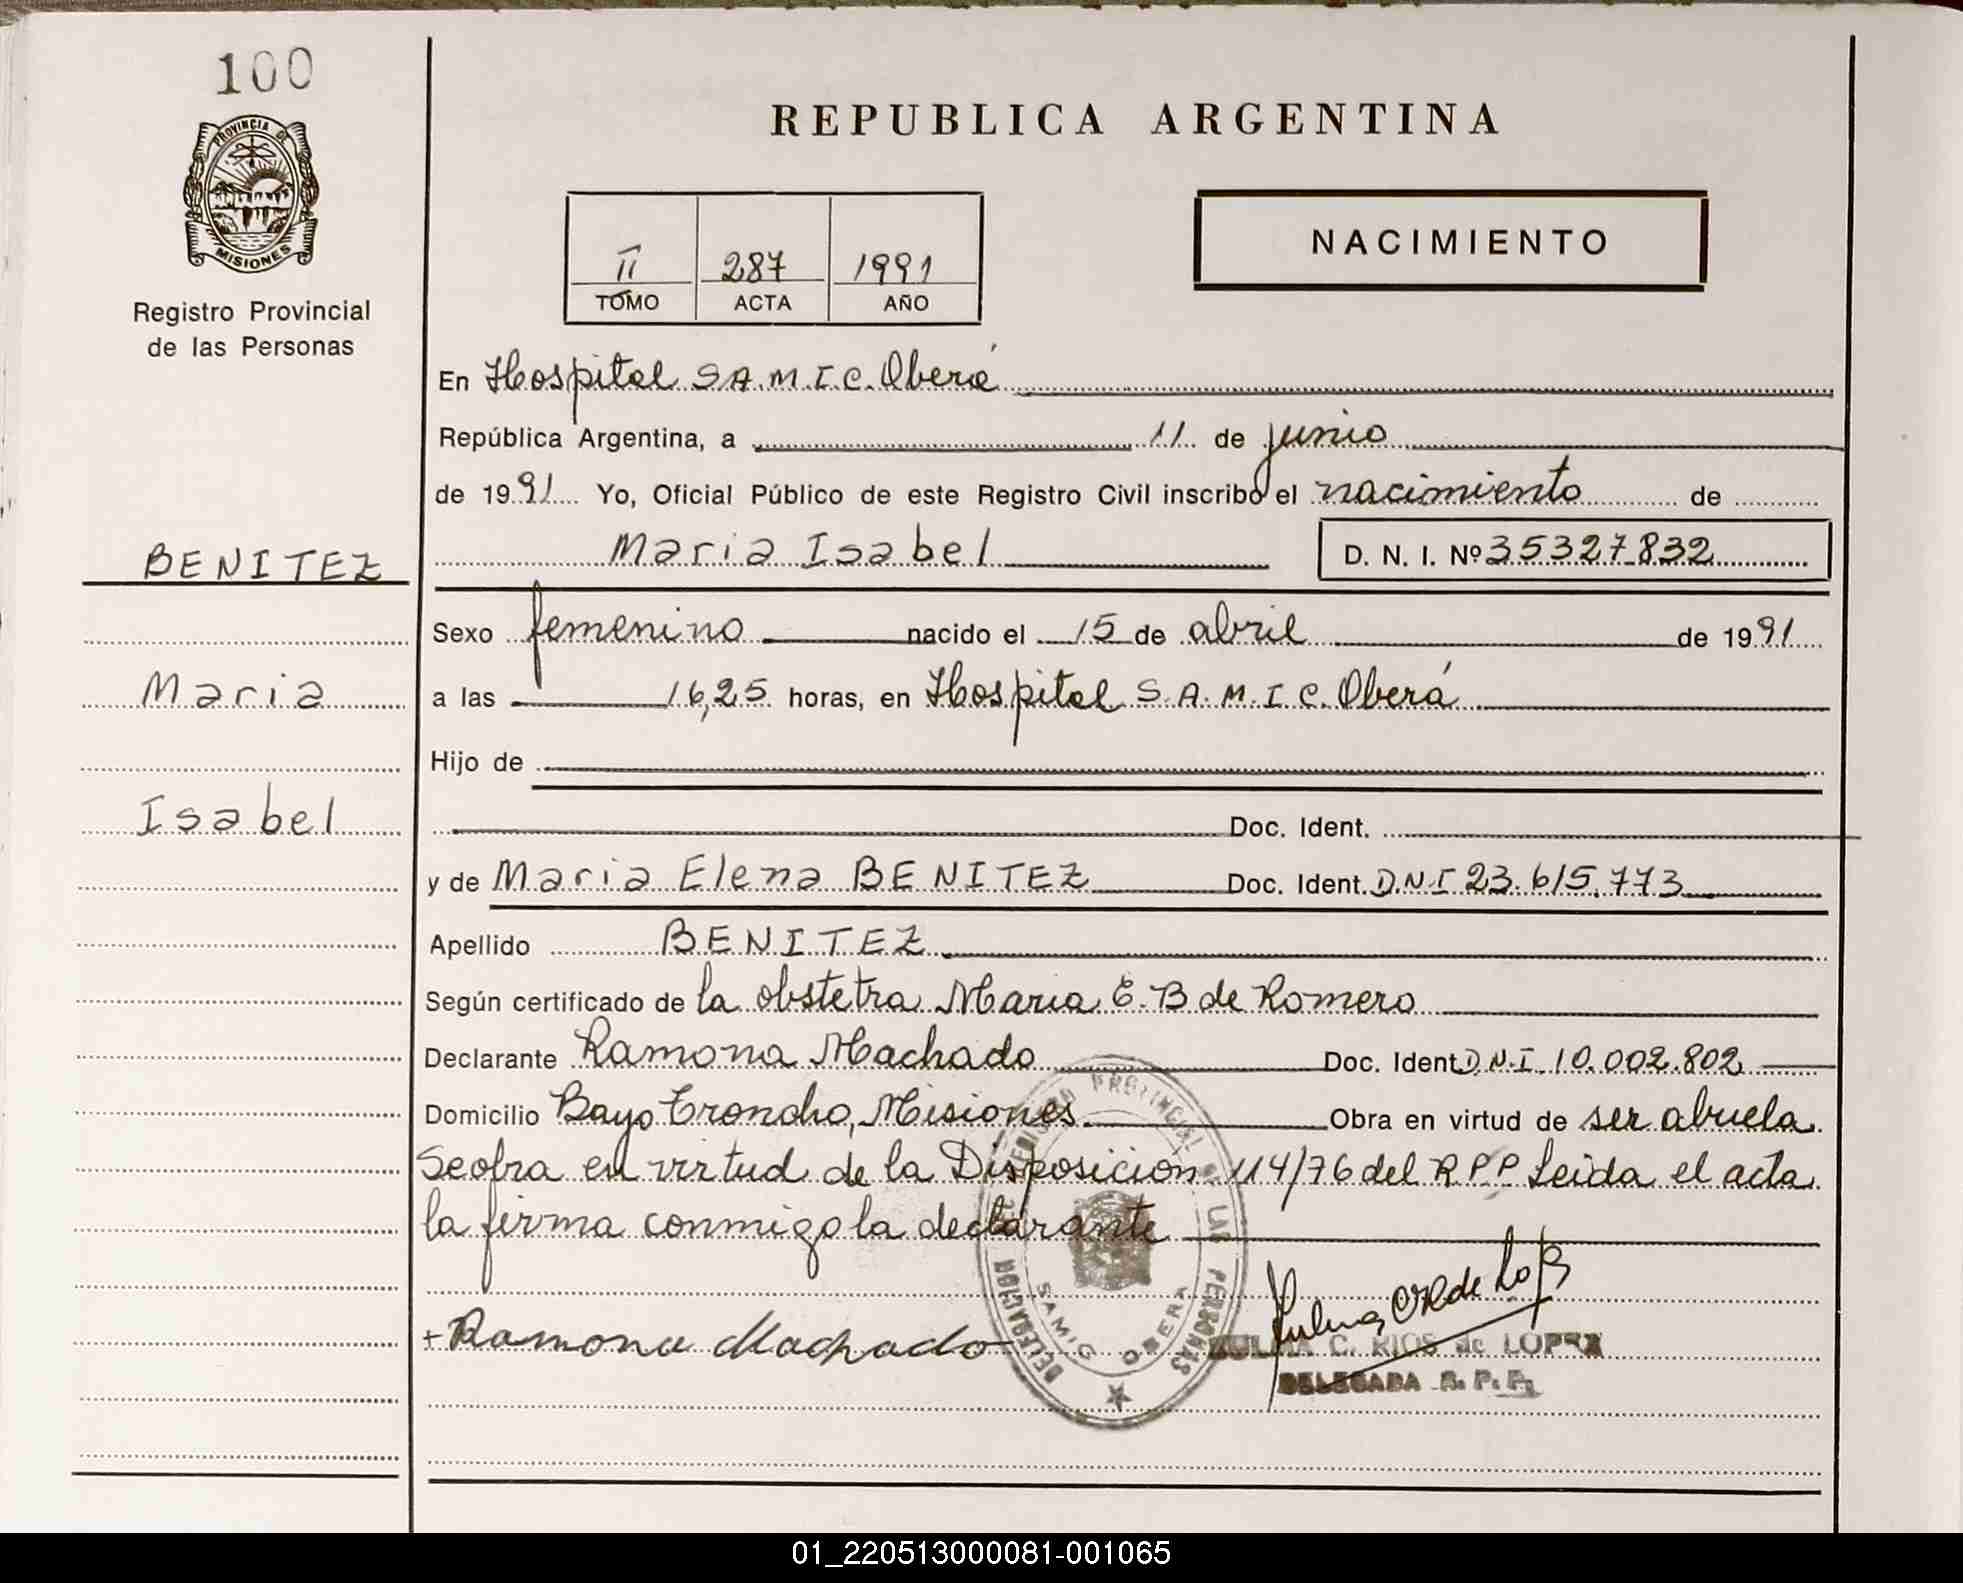 100
PROVINCIA DE
MISIONES
Registro Provincial
de las Personas
REPUBLICA ARGENTINA
II 287 1991
TOMO ACTA AÑO
NACIMIENTO
En Hospital S.A.M.I.C. Oberá
República Argentina, a 11 de junio
de 1991 Yo, Oficial Público de este Registro Civil inscribo el nacimiento de
Maria Isabel D. N. I. Nº 35327832
BENITEZ
Maria
Isabel
Sexo femenino nacido el 15 de abril de 1991
a las 16,25 horas, en Hospital S.A.M.I.C. Oberá
Hijo de
Doc. Ident.
y de Maria Elena BENITEZ Doc. Ident. D.N.I 23.615.773
Apellido BENITEZ
Según certificado de la obstetra Maria E. B de Romero
Declarante Ramona Machado Doc. Ident D.N.I. 10.002.802
Domicilio Bayo Troncho, Misiones Obra en virtud de ser abuela.
Se obra en virtud de la Disposición 114/76 del R.P.P. Leida el acta
la firma conmigo la declarante
+ Ramona Machado
REGISTRO PROVINCIAL DE LAS PERSONAS
DELEGACION
SAMIC OBERA
ZULMA C. RIOS de LOPEZ
DELEGADA R. P. P.
01_220513000081-001065